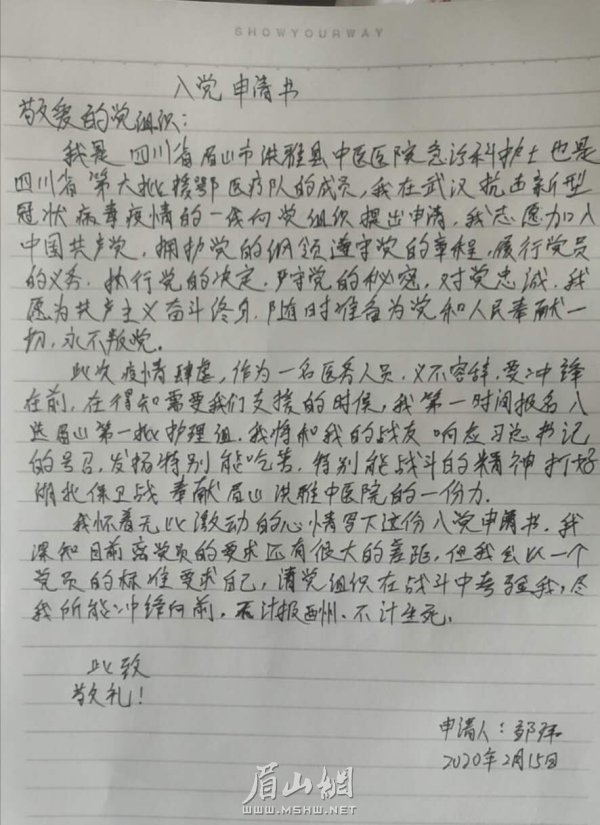 SHOWYOURWAY
入党申请书
敬爱的党组织：
我是四川省眉山市洪雅县中医医院急诊科护士也是
四川省第六批援鄂医疗队的成员，我在武汉抗击新型
冠状病毒疫情的一线向党组织提出申请，我志愿加入
中国共产党，拥护党的纲领遵守党的章程，履行党员
的义务，执行党的决定，严守党的秘密，对党忠诚，我
愿为共产主义奋斗终身，随时准备为党和人民奉献一
切，永不叛党。
此次疫情肆虐，作为一名医务人员，义不容辞，要冲锋
在前，在得知需要我们支援的时候，我第一时间报名入
选眉山第一批护理组，我将和我的战友响应习总书记
的号召，发扬特别能吃苦，特别能战斗的精神打好
湖北保卫战奉献眉山洪雅中医院的一份力。
我怀着无比激动的心情写下这份入党申请书，我
深知目前离党员的要求还有很大的差距，但我会以一个
党员的标准要求自己，请党组织在战斗中考验我，尽
我所能，冲锋向前，不计报酬，不计生死。
此致
敬礼！
申请人：邹
2020年2月15日
眉山網
WWW.MSHW.NET